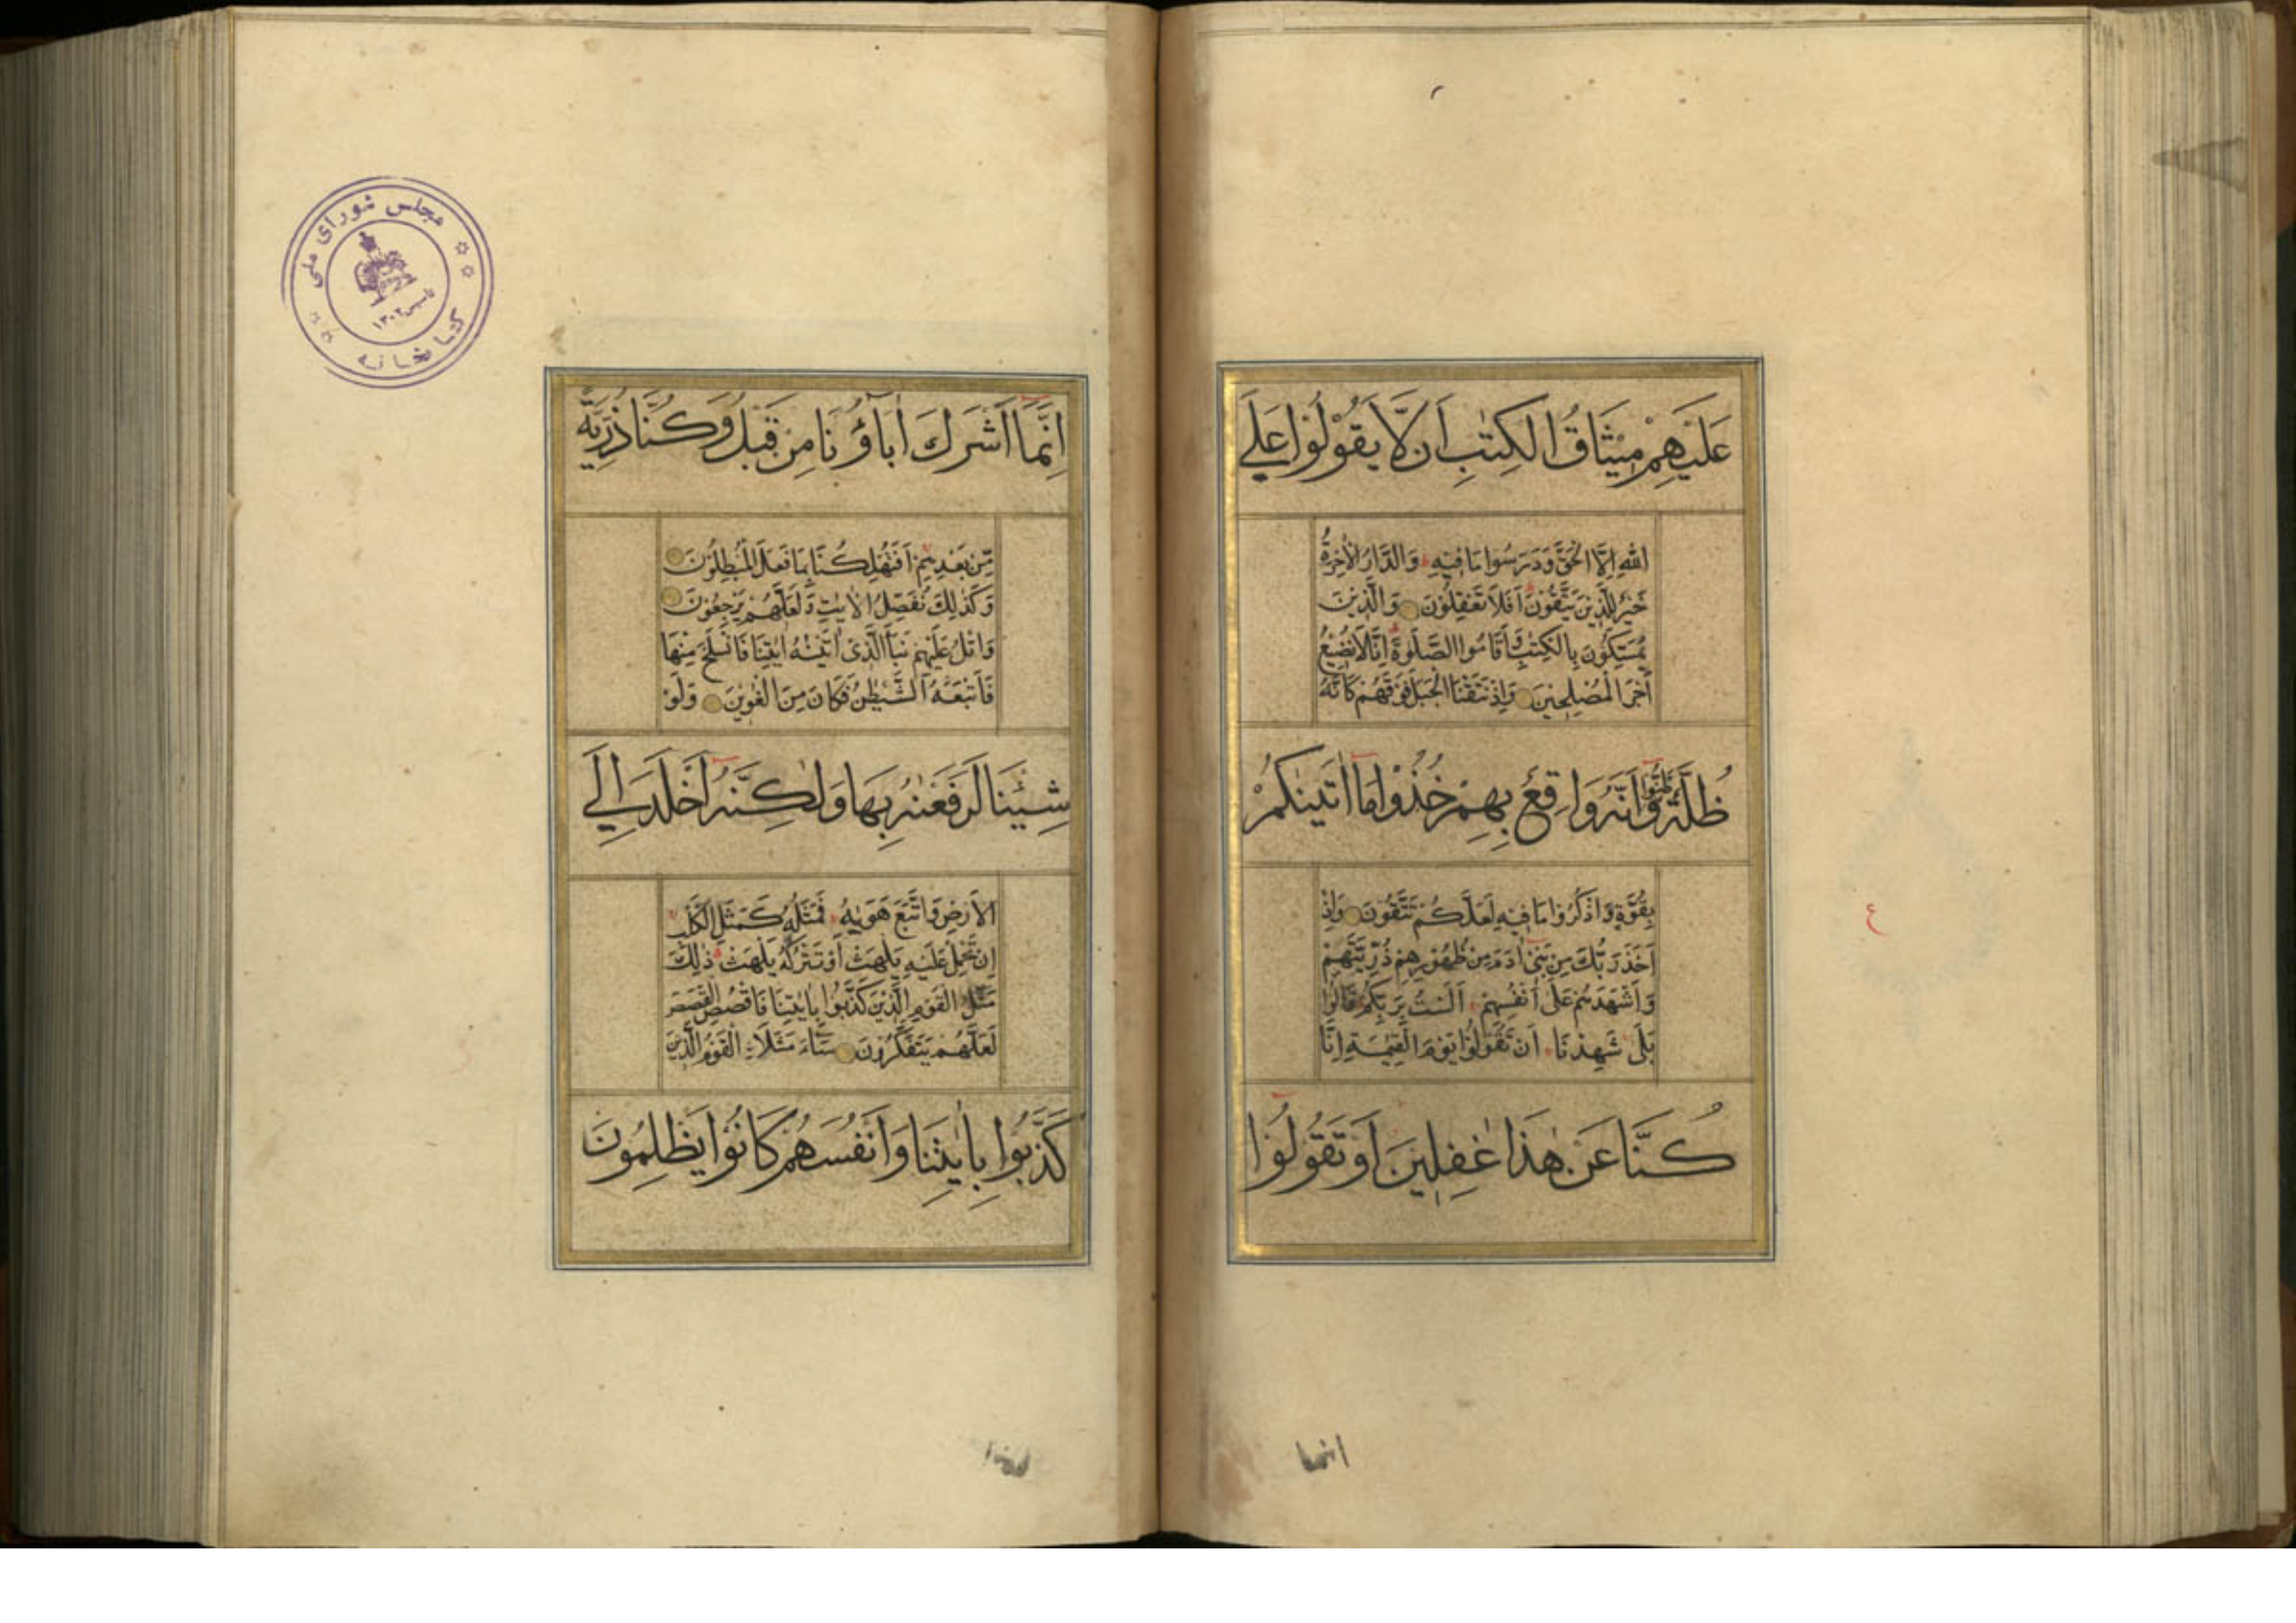 عَلَيْهِمْ مِيْثَاقُ الْكِتٰبِ اَنْ لَّا يَقُوْلُوْا عَلَى
اللّٰهِ اِلَّا الْحَقَّ وَدَرَسُوا مَا فِيْهِ وَالدَّارُ الْاٰخِرَةُ
خَيْرٌ لِلَّذِيْنَ يَتَّقُوْنَ اَفَلَا تَعْقِلُوْنَ وَالَّذِيْنَ
يُمَسِّكُوْنَ بِالْكِتٰبِ وَاَقَامُوا الصَّلٰوةَ اِنَّا لَا نُضِيْعُ
اَجْرَ الْمُصْلِحِيْنَ وَاِذْ نَتَقْنَا الْجَبَلَ فَوْقَهُمْ كَاَنَّهُ
ظُلَّةٌ وَظَنُّوْا اَنَّهُ وَاقِعٌ بِهِمْ خُذُوْا مَا اٰتَيْنٰكُمْ
بِقُوَّةٍ وَاذْكُرُوْا مَا فِيْهِ لَعَلَّكُمْ تَتَّقُوْنَ وَاِذْ
اَخَذَ رَبُّكَ مِنْ بَنِيْ اٰدَمَ مِنْ ظُهُوْرِهِمْ ذُرِّيَّتَهُمْ
وَاَشْهَدَهُمْ عَلٰى اَنْفُسِهِمْ اَلَسْتُ بِرَبِّكُمْ قَالُوْا
بَلٰى شَهِدْنَا اَنْ تَقُوْلُوْا يَوْمَ الْقِيٰمَةِ اِنَّا
كُنَّا عَنْ هٰذَا غٰفِلِيْنَ اَوْ تَقُوْلُوْا
انما
ع
اِنَّمَا اَشْرَكَ اٰبَاۤؤُنَا مِنْ قَبْلُ وَكُنَّا ذُرِّيَّةً
مِّنْ بَعْدِهِمْ اَفَتُهْلِكُنَا بِمَا فَعَلَ الْمُبْطِلُوْنَ
وَكَذٰلِكَ نُفَصِّلُ الْاٰيٰتِ وَلَعَلَّهُمْ يَرْجِعُوْنَ
وَاتْلُ عَلَيْهِمْ نَبَاَ الَّذِيْ اٰتَيْنٰهُ اٰيٰتِنَا فَانْسَلَخَ مِنْهَا
فَاَتْبَعَهُ الشَّيْطٰنُ فَكَانَ مِنَ الْغٰوِيْنَ وَلَوْ
شِئْنَا لَرَفَعْنٰهُ بِهَا وَلٰكِنَّهُ اَخْلَدَ اِلَى
الْاَرْضِ وَاتَّبَعَ هَوٰيهُ فَمَثَلُهُ كَمَثَلِ الْكَلْبِ
اِنْ تَحْمِلْ عَلَيْهِ يَلْهَثْ اَوْ تَتْرُكْهُ يَلْهَثْ ذٰلِكَ
مَثَلُ الْقَوْمِ الَّذِيْنَ كَذَّبُوْا بِاٰيٰتِنَا فَاقْصُصِ الْقَصَصَ
لَعَلَّهُمْ يَتَفَكَّرُوْنَ سَاۤءَ مَثَلَا الْقَوْمُ الَّذِيْنَ
كَذَّبُوْا بِاٰيٰتِنَا وَاَنْفُسَهُمْ كَانُوْا يَظْلِمُوْنَ
مجلس شورای ملی
کتابخانه
تأسیس ۱۳۰۲